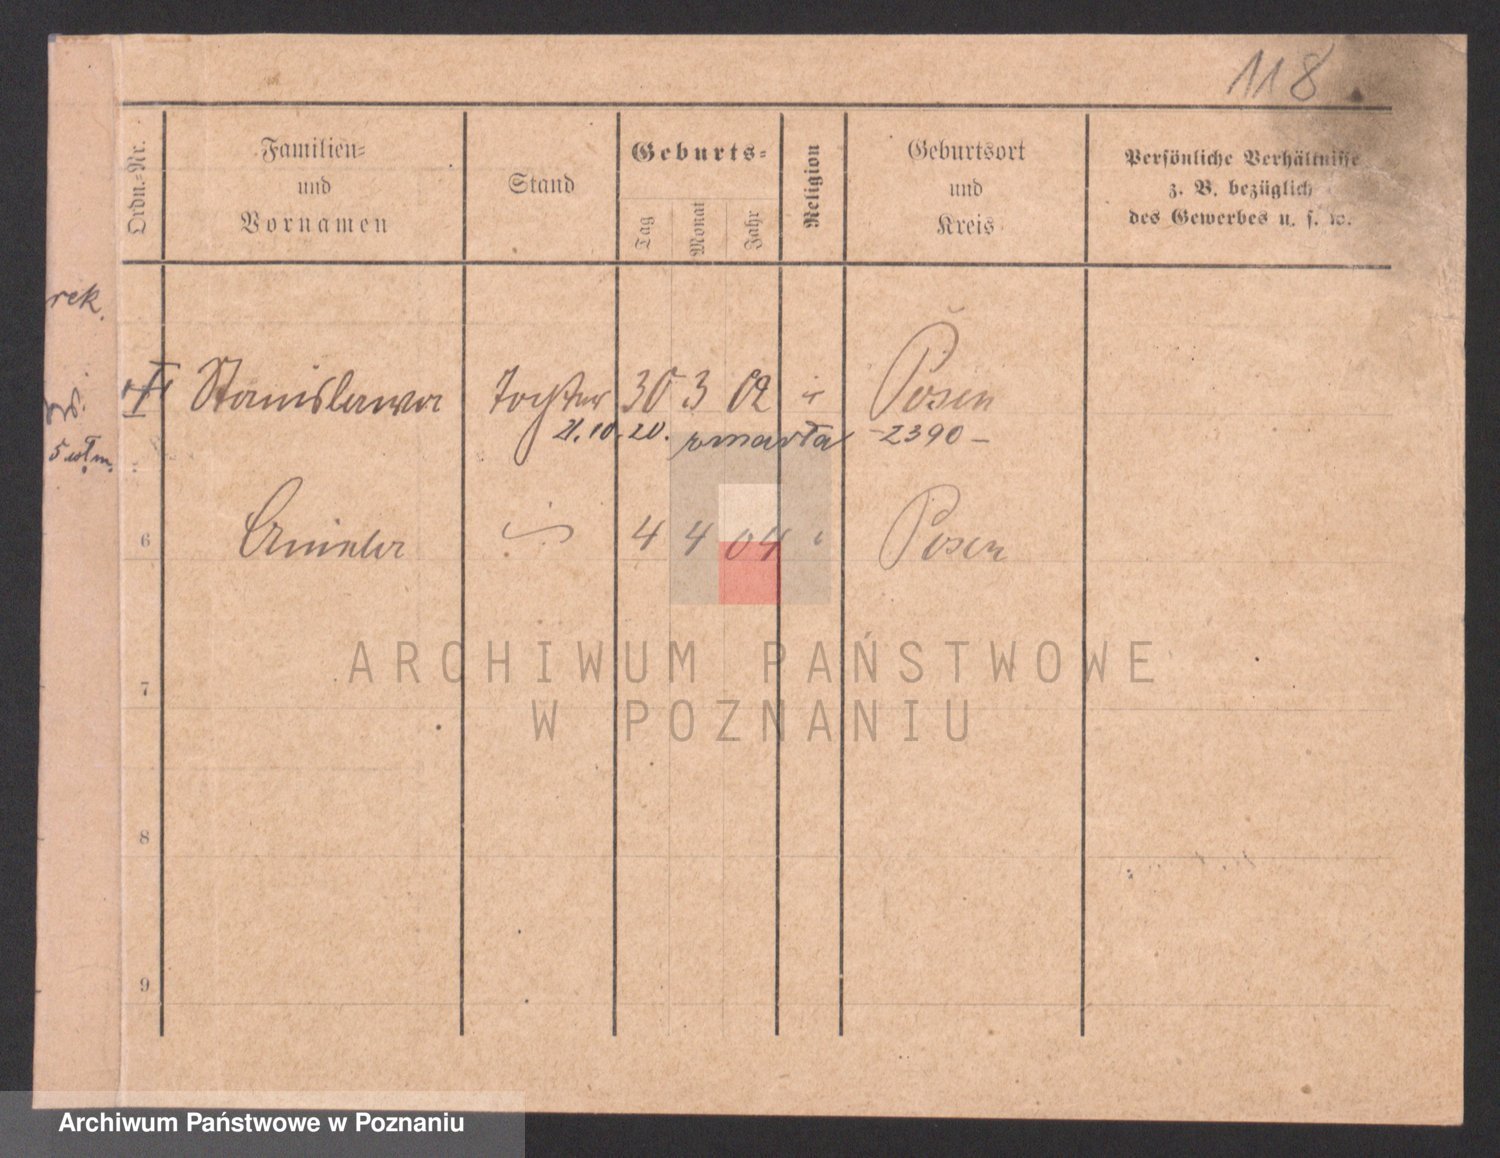 118
Ordn.-Nr.
Familien-
und
Vornamen
Stand
Geburts-
Tag
Monat
Jahr
Religion
Geburtsort
und
Kreis
Persönliche Verhältnisse
z. B. bezüglich
des Gewerbes u. s. w.
rek.
Stanislawa Tochter 30 3 02 Posen
21.10.20. zmarła -2390-
6 4 4 04 Posen
7
8
9
ARCHIWUM PAŃSTWOWE
W POZNANIU
Archiwum Państwowe w Poznaniu